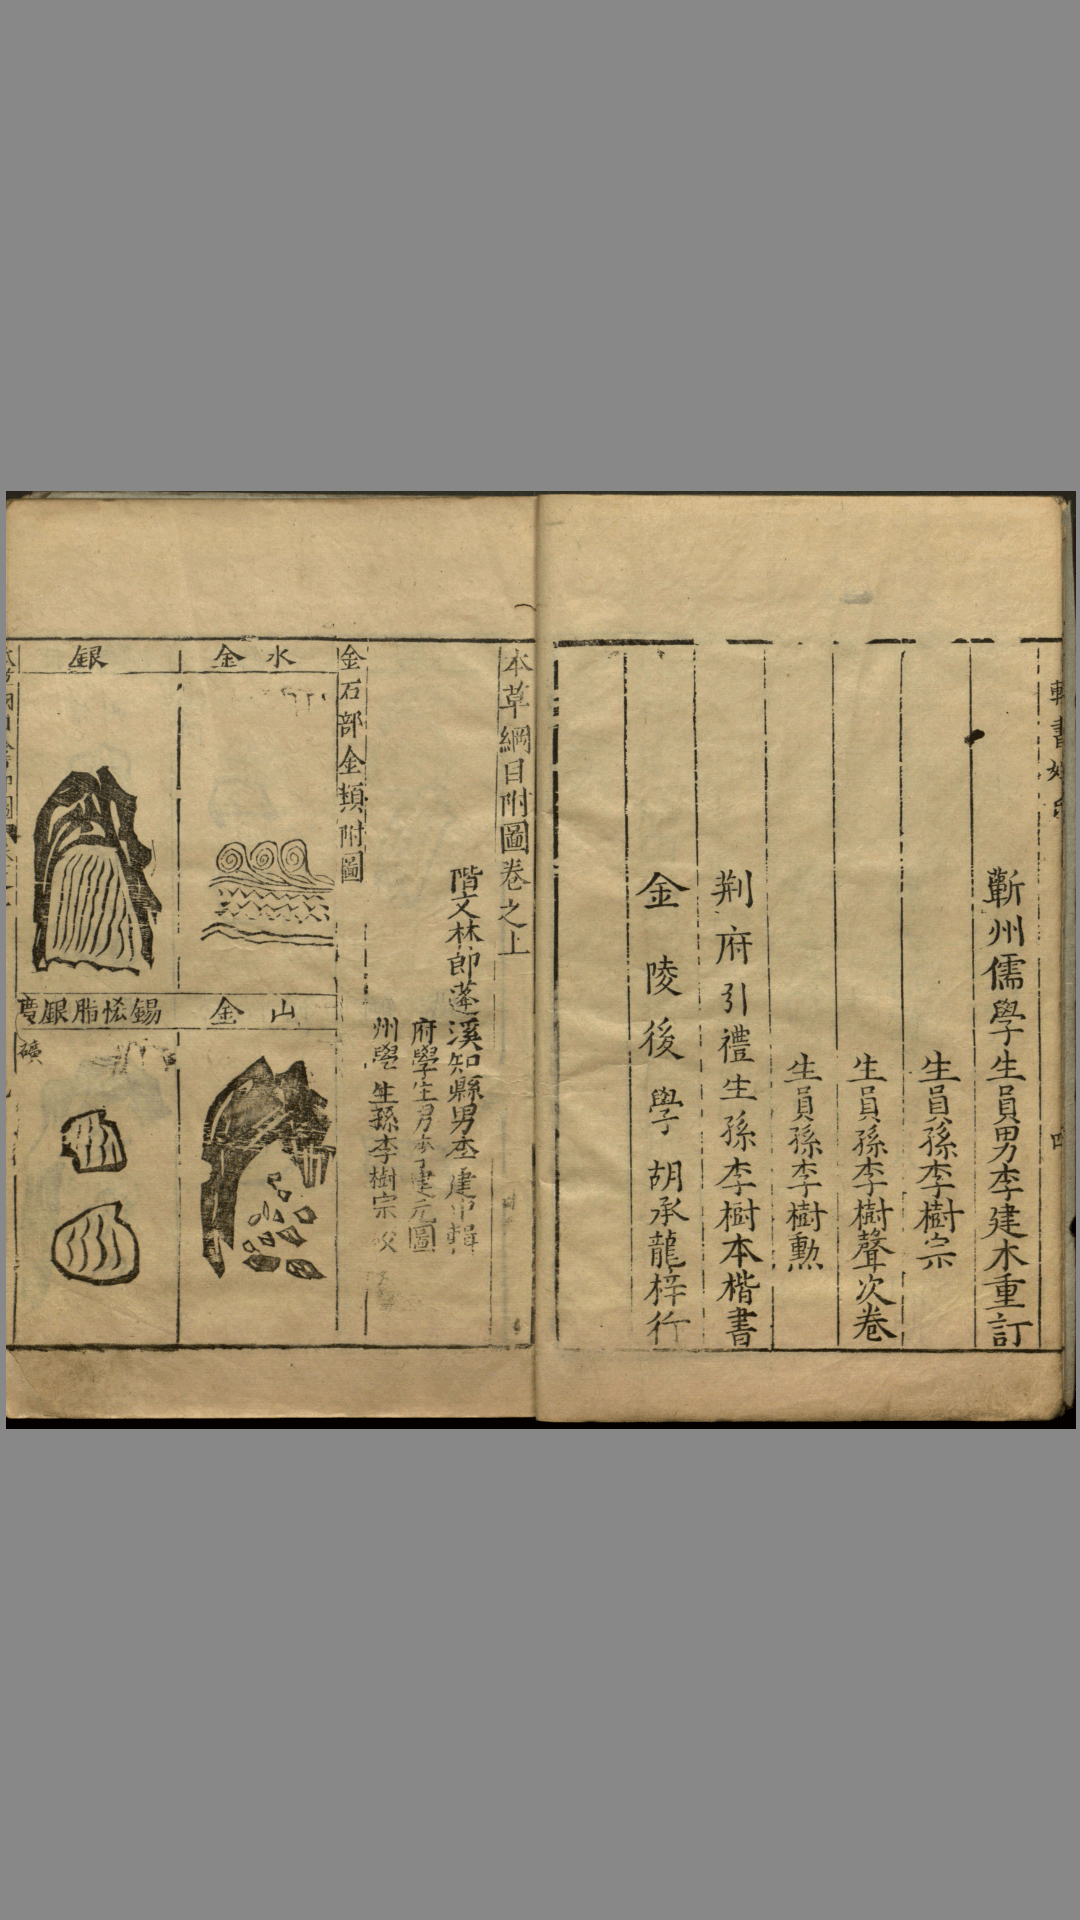 蘄州儒學生員男李建木重訂
生員孫李樹宗
生員孫李樹聲次卷
生員孫李樹勲
荆府引禮生孫李樹本楷書
金陵後學胡承龍梓行
本草綱目附圖卷之上
階文林郎蓬溪知縣男李建中輯
府學生男李建元圖
州學生孫李樹宗校
金石部金類附圖
水金
山金
銀
錫恡脂銀
礦